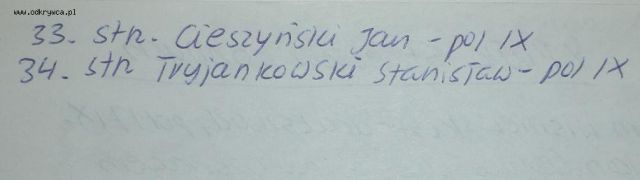 www.odkrywca.pl
33. str. Cieszyński Jan - pol IX
34. str Tryjankowski Stanisław - pol IX